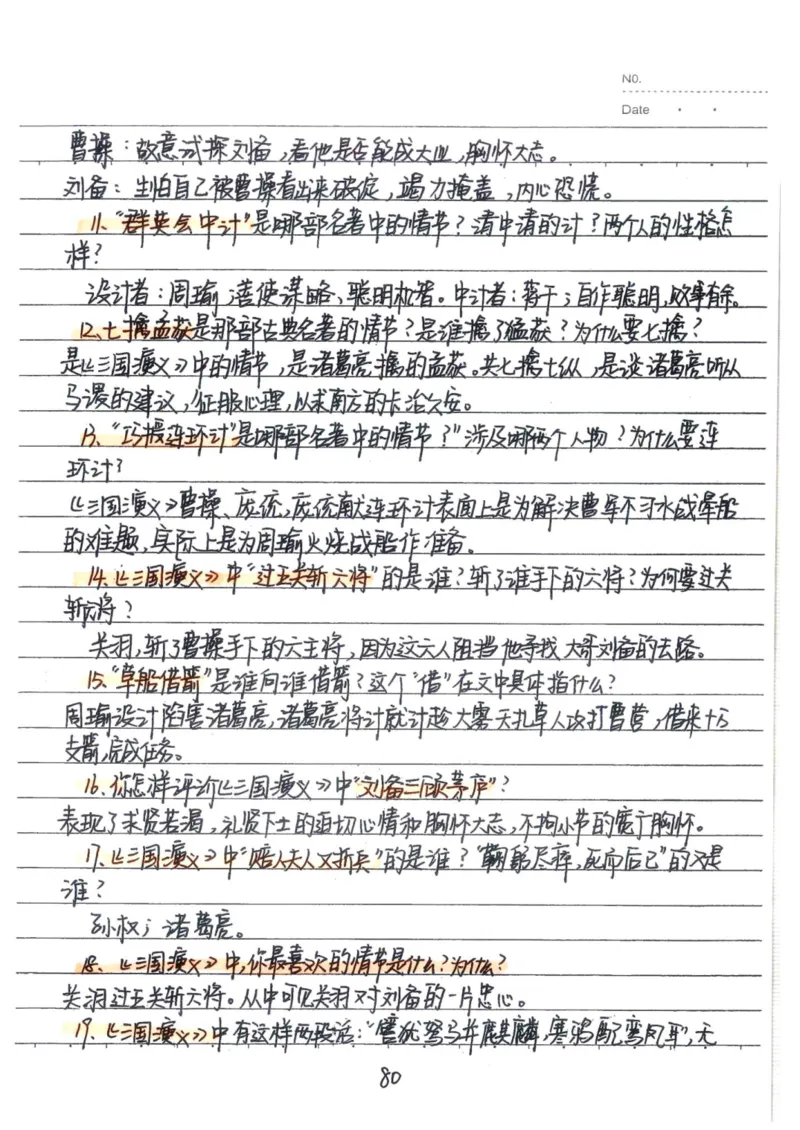 NO.
Date
曹操：故意试探刘备，看他是否能成大业，胸怀大志。
刘备：生怕自己被曹操看出来破绽，竭力掩盖，内心恐慌。
11、“群英会中计”是哪部名著中的情节？清中请的计？两个人的性格怎
样？
设计者：周瑜；善使谋略、聪明机智。中计者：蒋干；自作聪明，败事有余。
12、七擒孟获是那部古典名著的情节？是谁擒了猛获？为什么要七擒？
是《三国演义》中的情节，是诸葛亮擒的孟获。共七擒七纵，是谈诸葛亮听从
马谡的建议，征服心理，以求南方的长治久安。
13、“巧授连环计”是哪部名著中的情节？”涉及哪两个人物？为什么要连
环计？
《三国演义》曹操、庞统，庞统献连环计表面上是为解决曹军不习水战晕船
的难题，实际上是为周瑜火烧战船作准备。
14、《三国演义》中“过五关斩六将”的是谁？斩了谁手下的六将？为何要过关
斩六将？
关羽，斩了曹操手下的六主将，因为这六人阻挡他寻找大哥刘备的去路。
15、“草船借箭”是谁向谁借箭？这个“借”在文中具体指什么？
周瑜设计陷害诸葛亮，诸葛亮将计就计趁大雾天扎草人攻打曹营，借来十万
支箭，完成任务。
16、你怎样评价《三国演义》中“刘备三顾茅庐”？
表现了求贤若渴，礼贤下士的迫切心情和胸怀大志，不拘小节的宽广胸怀。
17、《三国演义》中“赔了夫人又折兵”的是谁？“鞠躬尽瘁，死而后已”的又是
谁？
孙权；诸葛亮。
18、《三国演义》中，你最喜欢的情节是什么？为什么？
关羽过五关斩六将。从中可见关羽对刘备的一片忠心。
19、《三国演义》中有这样两段话：“譬犹驽马并麒麟，寒鸦配鸾凤耳”，无
80